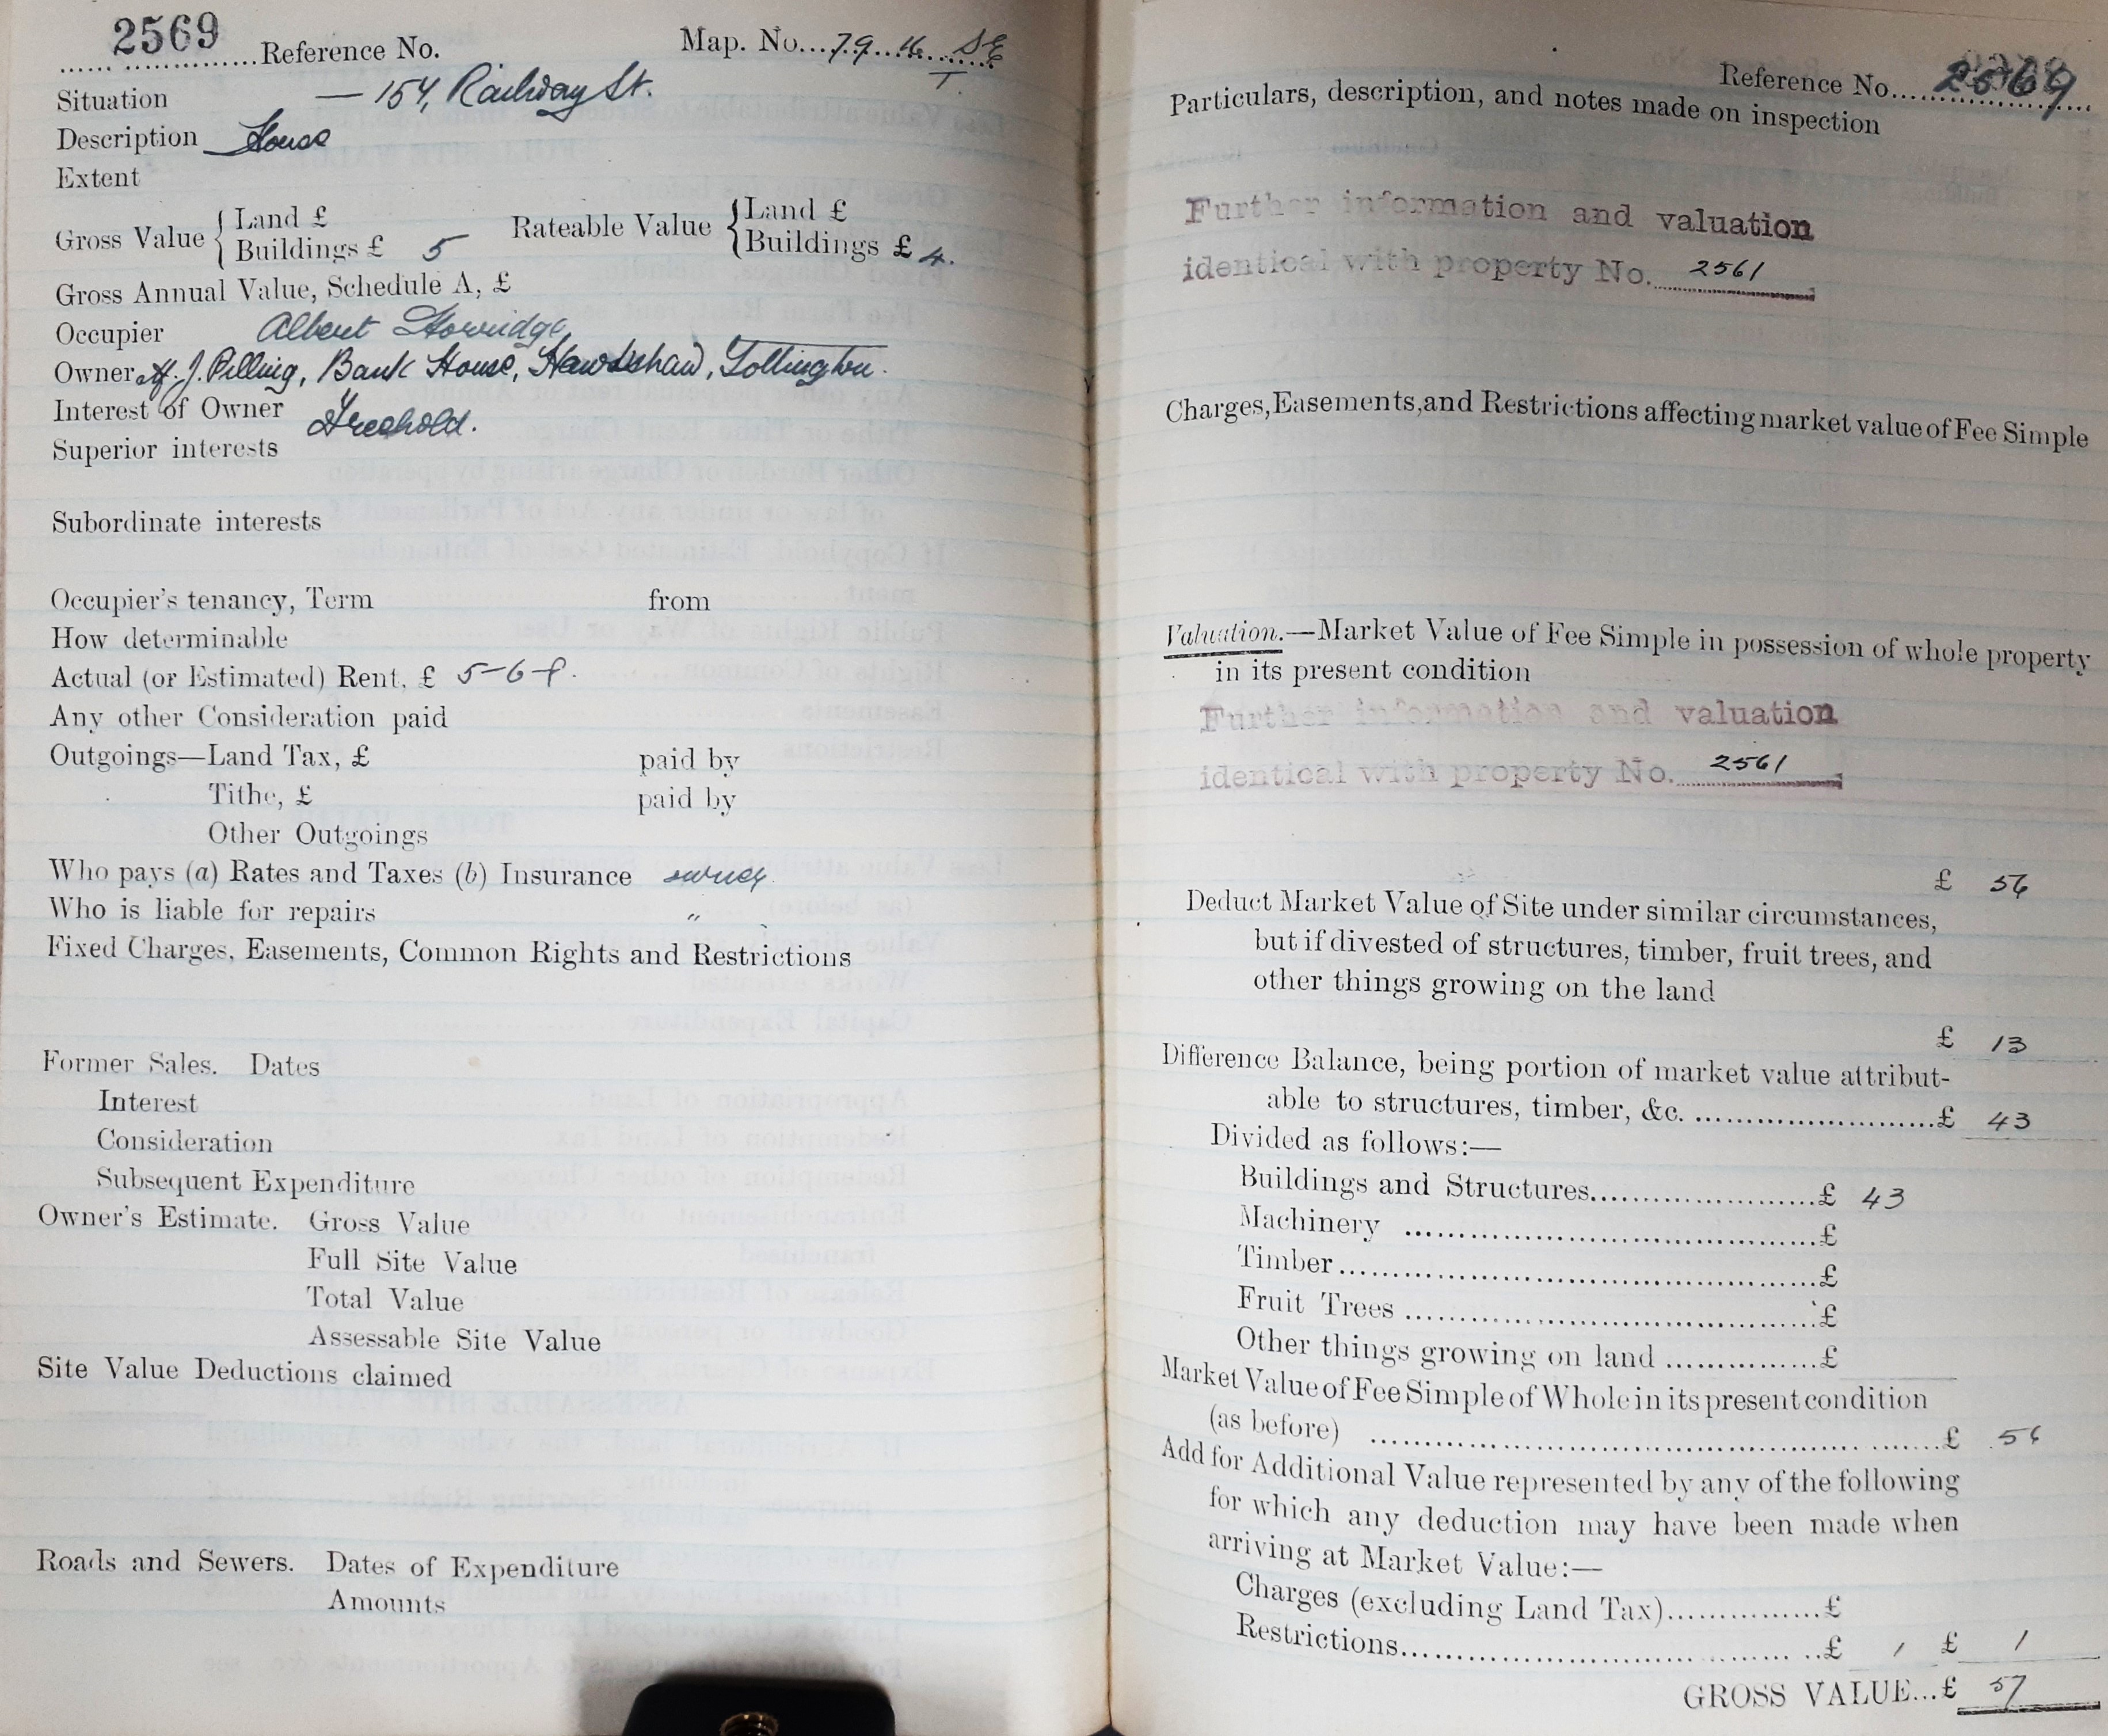 2569 Reference No. Map. No. 79. 16. SE
T.
Situation — 154, Railway St.
Description House
Extent
Gross Value { Land £
Buildings £ 5
Rateable Value { Land £
Buildings £ 4.
Gross Annual Value, Schedule A, £
Occupier Albert
Owner J. Pilling, Bank House, Hawkshaw, Tottington.
Interest of Owner Freehold.
Superior interests
Subordinate interests
Occupier's tenancy, Term from
How determinable
Actual (or Estimated) Rent, £ 5-6-8.
Any other Consideration paid
Outgoings—Land Tax, £ paid by
Tithe, £ paid by
Other Outgoings
Who pays (a) Rates and Taxes (b) Insurance owner
Who is liable for repairs "
Fixed Charges, Easements, Common Rights and Restrictions
Former Sales. Dates
Interest
Consideration
Subsequent Expenditure
Owner's Estimate. Gross Value
Full Site Value
Total Value
Assessable Site Value
Site Value Deductions claimed
Roads and Sewers. Dates of Expenditure
Amounts
Reference No. 2569
Particulars, description, and notes made on inspection
Further information and valuation
identical with property No. 2561
Charges, Easements, and Restrictions affecting market value of Fee Simple
Valuation.—Market Value of Fee Simple in possession of whole property
in its present condition
Further information and valuation
identical with property No. 2561
£ 56
Deduct Market Value of Site under similar circumstances,
but if divested of structures, timber, fruit trees, and
other things growing on the land
£ 13
Difference Balance, being portion of market value attribut-
able to structures, timber, &c. £ 43
Divided as follows:—
Buildings and Structures £ 43
Machinery £
Timber £
Fruit Trees £
Other things growing on land £
Market Value of Fee Simple of Whole in its present condition
(as before) £ 56
Add for Additional Value represented by any of the following
for which any deduction may have been made when
arriving at Market Value:—
Charges (excluding Land Tax) £
Restrictions £ 1 £ 1
GROSS VALUE...£ 57